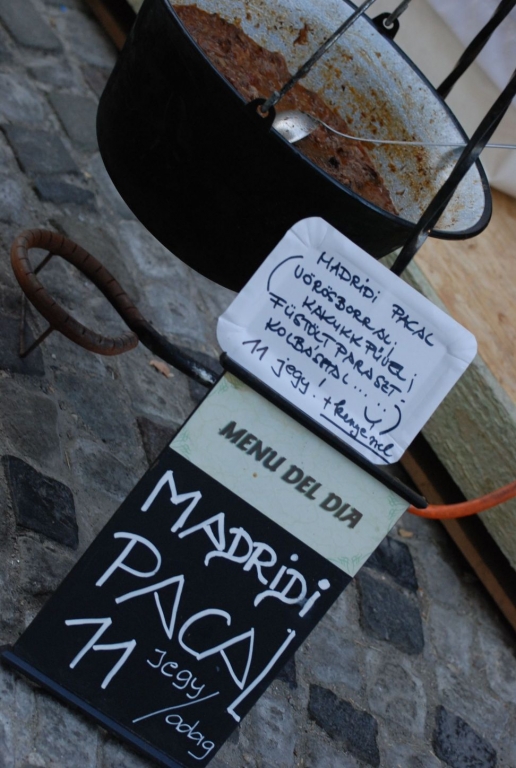 MADRIDI PACAL
(VÖRÖSBORRALi
KAKUKKFŰVEL i
FÜSTÖLT PARASZT-
KOLBÁSZTAL.......)
11 jegy! + kenyérrel
MENU DEL DIA
MADRIDI
PACAL
11 jegy/adag